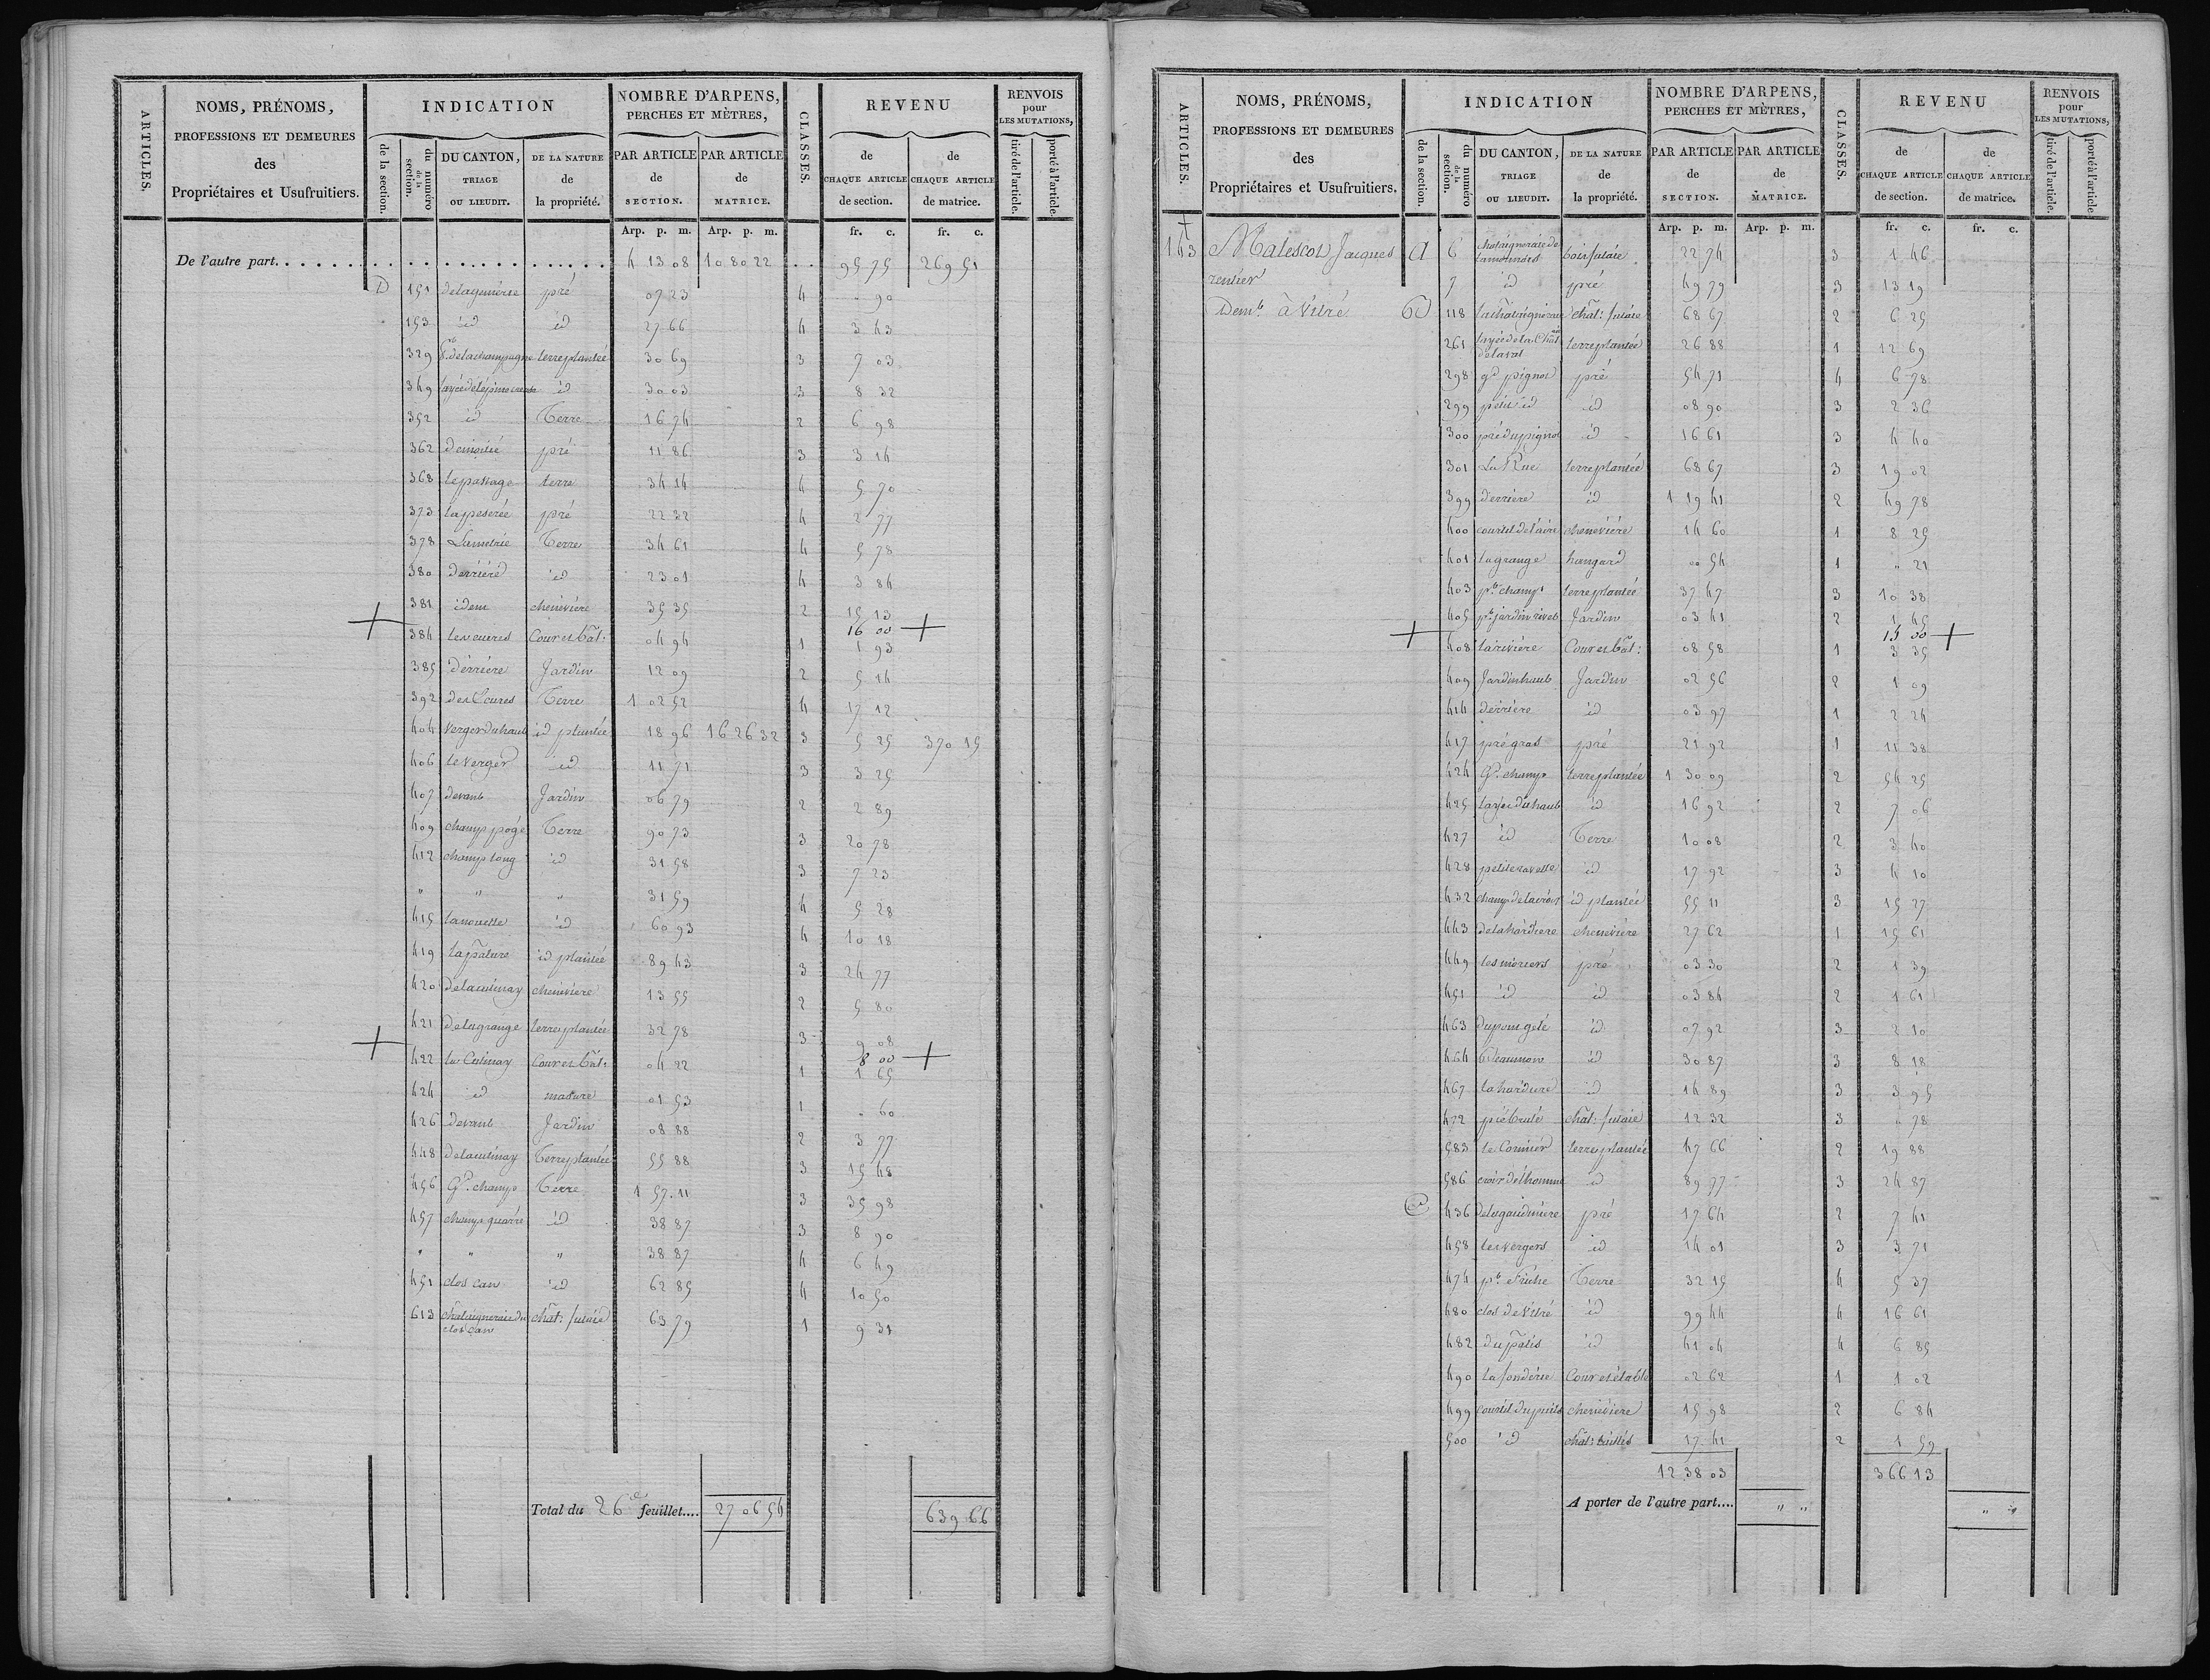 ARTICLES.
NOMS, PRÉNOMS,
PROFESSIONS ET DEMEURES
des
Propriétaires et Usufruitiers.
INDICATION
de la section.
du numéro de la section.
DU CANTON,
TRIAGE
OU LIEUDIT.
DE LA NATURE
de
la propriété.
NOMBRE D'ARPENS,
PERCHES ET MÈTRES,
PAR ARTICLE
de
SECTION.
PAR ARTICLE
de
MATRICE.
CLASSES.
REVENU
de
CHAQUE ARTICLE
de section.
de
CHAQUE ARTICLE
de matrice.
RENVOIS
pour
LES MUTATIONS,
tiré de l'article.
porté à l'article.
Arp. p. m. Arp. p. m. fr. c. fr. c.
De l'autre part. 4 13 08 10 80 22 95 75 269 51
D 151 pré 07 23 4 " 90
153 id id 27 66 4 3 43
329 de la champagne terre plantée 30 69 3 7 03
349 id 30 03 3 8 32
352 id Terre 16 74 2 6 98
362 pré 11 86 3 3 14
368 le passage terre 34 14 4 5 70
373 la peserée pré 22 32 4 2 77
378 Terre 34 61 4 5 78
380 derriere id 23 01 4 3 84
381 idem cheneviere 35 35 2 15 13
16 00
384 Cour et bât: 04 94 1 1 93
385 derriere Jardin 12 09 2 5 14
392 Terre 1 02 52 4 17 12
404 verger du haut id plantée 18 96 16 26 32 3 5 25 370 15
406 le verger id 11 71 3 3 25
407 devant Jardin 06 79 2 2 89
409 champ pogé Terre 90 73 3 20 78
412 champ long id 31 58 3 7 23
" " " 31 59 4 5 28
415 la nouette id 60 93 4 10 18
419 la pature id plantée 89 43 3 24 77
420 cheneviere 13 55 2 5 80
421 de la grange terre plantée 32 78 3 9 08
8 00
422 Cour et bât: 04 22 1 1 65
424 id masure 01 53 1 " 60
426 devant Jardin 08 88 2 3 77
448 Terre plantée 55 88 3 15 48
456 Gd. champ Terre 1 57 11 3 35 98
457 champ quarré id 38 87 3 8 90
" " " 38 87 4 6 49
451 clos can id 62 85 4 10 50
613 chataigneraie du clos can chât: futaie 63 79 1 9 31
Total du 26e feuillet.... 27 06 54 639 66
ARTICLES.
NOMS, PRÉNOMS,
PROFESSIONS ET DEMEURES
des
Propriétaires et Usufruitiers.
INDICATION
de la section.
du numéro de la section.
DU CANTON,
TRIAGE
OU LIEUDIT.
DE LA NATURE
de
la propriété.
NOMBRE D'ARPENS,
PERCHES ET MÈTRES,
PAR ARTICLE
de
SECTION.
PAR ARTICLE
de
MATRICE.
CLASSES.
REVENU
de
CHAQUE ARTICLE
de section.
de
CHAQUE ARTICLE
de matrice.
RENVOIS
pour
LES MUTATIONS,
tiré de l'article.
porté à l'article.
Arp. p. m. Arp. p. m. fr. c. fr. c.
143 Malescot Jacques A 6 bois futaie 22 74 3 1 46
rentier 7 id pré 49 79 3 13 19
Demt. à Vitré B 118 la chataigneraie chât: futaie 68 67 2 6 25
261 terre plantée 26 88 1 12 69
298 gd pignot pré 54 71 4 6 78
299 petit id id 08 90 3 2 36
300 pré du pignot id 16 61 3 4 40
301 La Rue terre plantée 68 67 3 19 02
399 derriere id 1 19 41 2 49 78
400 courtil de l'aire cheneviere 14 60 1 8 25
401 la grange hangard 00 54 1 " 21
403 pt. champ terre plantée 37 47 3 10 38
405 Jardin 03 41 2 1 45
15 00
408 la riviere Cour et bât: 08 58 1 3 35
409 Jardin haut Jardin 02 56 2 1 09
414 derriere id 03 97 1 2 24
417 pré gras pré 21 92 1 11 38
424 Gd. champ terre plantée 1 30 09 2 54 25
425 id 16 92 2 7 06
427 id Terre 10 08 2 3 40
428 id 17 92 3 4 10
432 champ de la croix id plantée 55 11 3 15 27
443 de la hardiere cheneviere 27 62 1 15 61
449 pré 03 30 2 1 39
451 id id 03 84 2 1 61
463 id 07 92 3 2 10
464 Beaumon id 30 87 3 8 18
467 id 14 89 3 3 95
472 pré brulé chât: futaie 12 32 3 " 78
583 le Cormier terre plantée 47 66 2 19 88
586 id 89 77 3 24 87
C 436 de la gaudiniere pré 17 64 2 7 41
458 les vergers id 14 01 3 3 71
474 Terre 32 15 4 5 37
480 clos de Vitré id 99 44 4 16 61
482 du patis id 41 04 4 6 85
490 la fonderie Cour et étable 02 62 1 1 02
499 courtil du puits cheneviere 15 98 2 6 84
500 id chât: taillis 17 41 2 1 59
12 38 03 366 13
A porter de l'autre part.... " " " "